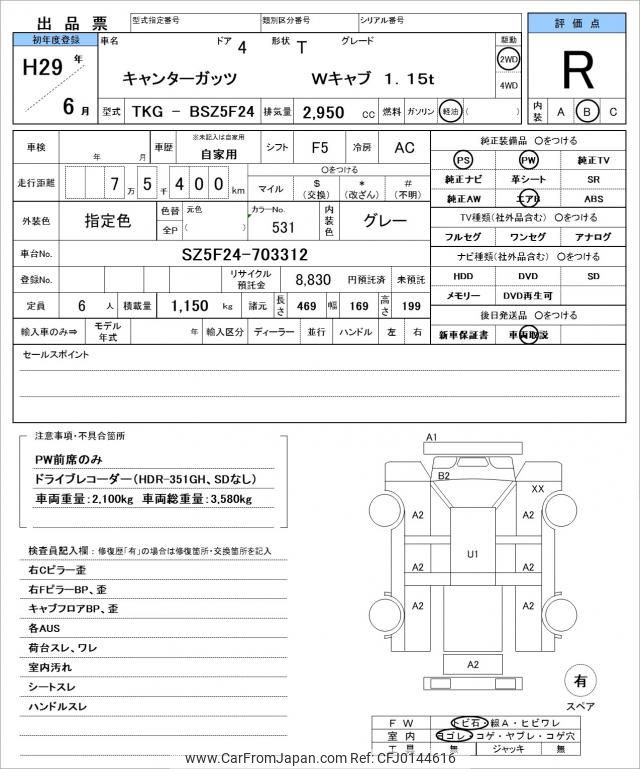 出品票 型式指定番号 類別区分番号 シリアル番号 評価点
初年度登録 車名 ドア 4 形状 T グレード 駆動
H29 年 キャンターガッツ Wキャブ 1.15t 2WD R
4WD
6 月 型式 TKG - BSZ5F24 排気量 2,950 cc 燃料 ガソリン 軽油 ( ) 内装 A B C
車検 年 月 車歴 ※未記入は自家用 自家用 シフト F5 冷房 AC 純正装備品 〇をつける
PS PW 純正TV
走行距離 7 万 5 千 4 0 0 km 〇をつける 純正ナビ 革シート SR
マイル $ (交換) * (改ざん) # (不明) 純正AW エアB ABS
外装色 指定色 色替 元色 カラーNo. 内装色 グレー TV種類(社外品含む) 〇をつける
全P ( ) 531 フルセグ ワンセグ アナログ
車台No. SZ5F24-703312 ナビ種類(社外品含む) 〇をつける
登録No. リサイクル預託金 8,830 円預託済 未預託 HDD DVD SD
定員 6 人 積載量 1,150 kg 諸元 長さ 469 幅 169 高さ 199 メモリー DVD再生可
後日発送品 〇をつける
輸入車のみ⇒ モデル年式 年 輸入区分 ディーラー 並行 ハンドル 左 右 新車保証書 車両取説
セールスポイント
注意事項・不具合箇所
PW前席のみ
ドライブレコーダー(HDR-351GH、SDなし)
車両重量:2,100kg 車両総重量:3,580kg
検査員記入欄:修復歴「有」の場合は修復箇所・交換箇所を記入
右Cピラー歪
右FピラーBP、歪
キャブフロアBP、歪
各AUS
荷台スレ、ワレ
室内汚れ
シートスレ
ハンドルスレ
A1
B2
XX
A2 A2
U1
A2 A2
A2 A2
A2
有
スペア
FW トビ石・線A・ヒビワレ
室内 ヨゴレ・コゲ・ヤブレ・コゲ穴
工具 無 ジャッキ 無
www.CarFromJapan.com Ref:EJ0144616